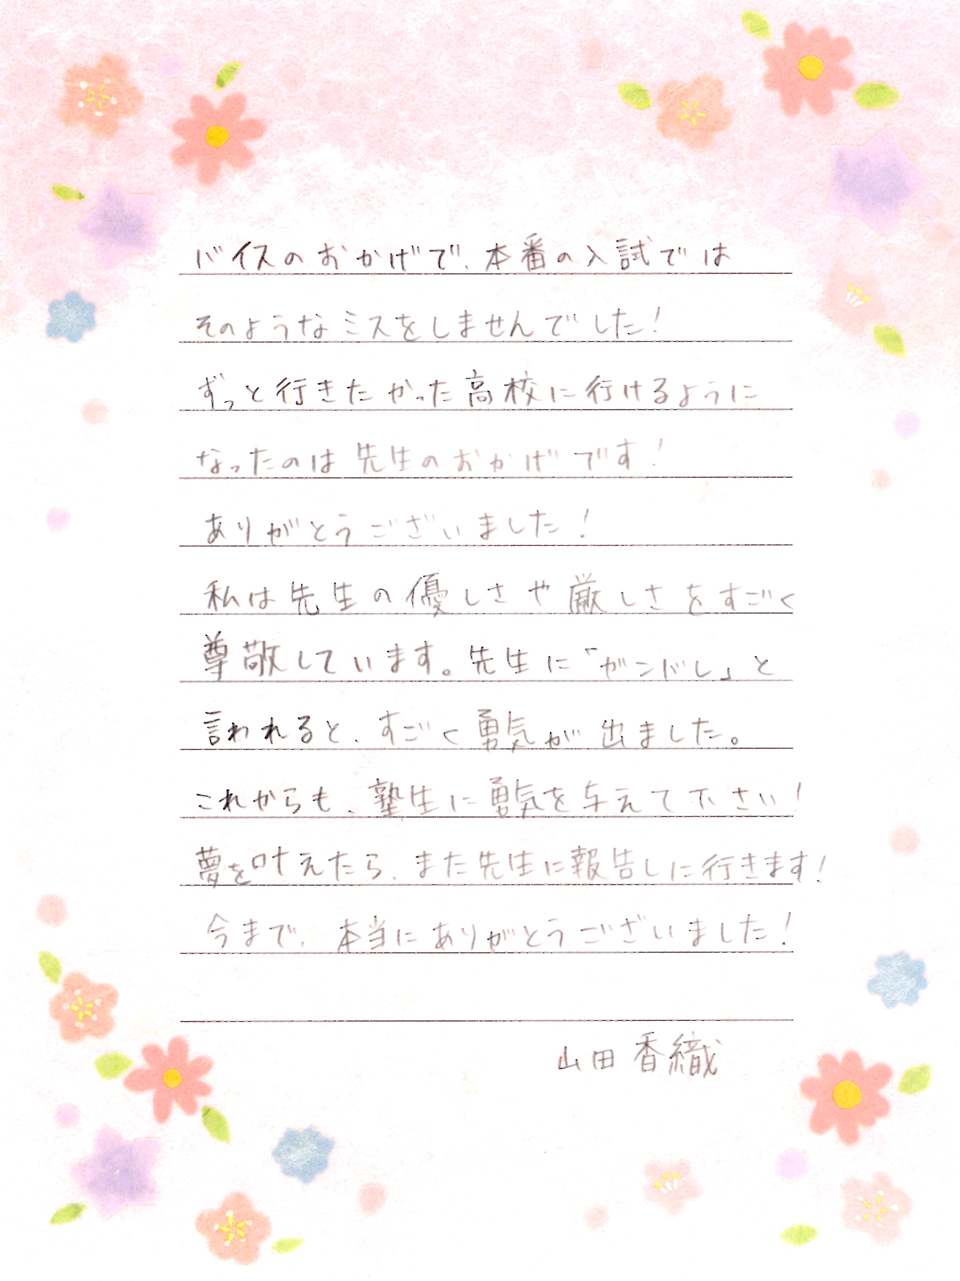 バイスのおかげで、本番の入試では
そのようなミスをしませんでした!
ずっと行きたかった高校に行けるように
なったのは先生のおかげです!
ありがとうございました!
私は先生の優しさや厳しさをすごく
尊敬しています。先生に「ガンバレ」と
言われると、すごく勇気が出ました。
これからも、塾生に勇気を与えて下さい!
夢を叶えたら、また先生に報告しに行きます!
今まで、本当にありがとうございました!
山田香織